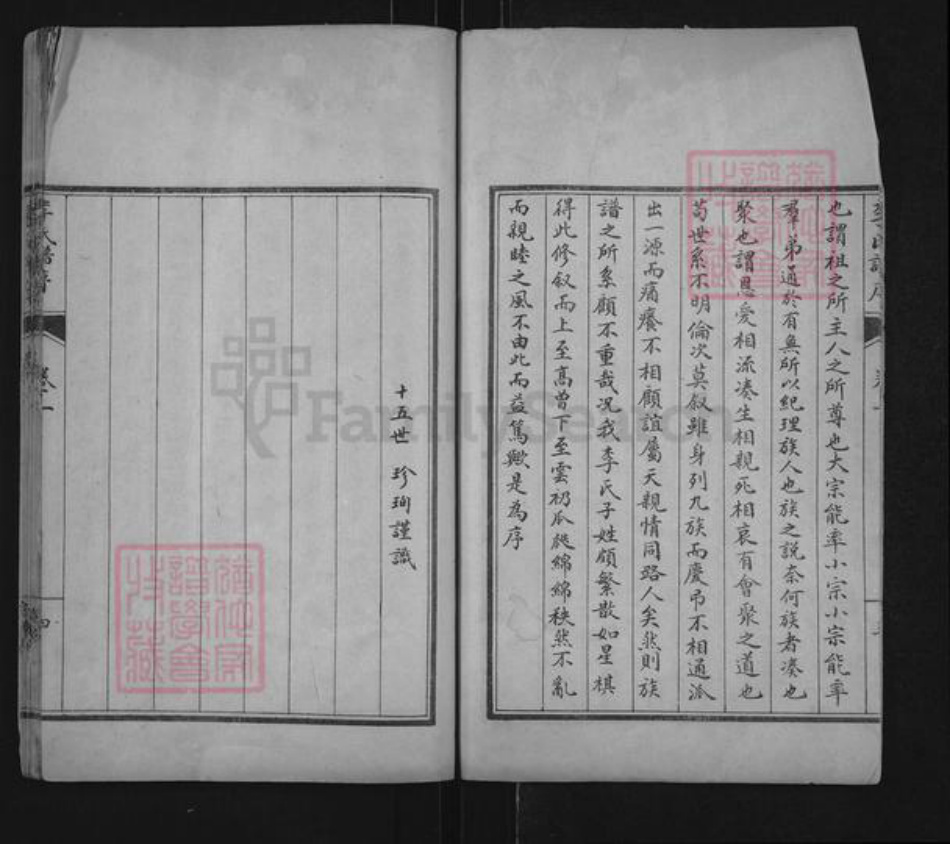 李氏譜序
也謂祖之所主人之所尊也大宗能率小宗小宗能率
羣弟通於有無所以紀理族人也族之說奈何族者湊也
聚也謂恩愛相流湊生相親死相哀有會聚之道也
苟世系不明倫次莫叙雖身列九族而慶弔不相通派
出一源而痛癢不相顧誼屬天親情同路人矣然則族
譜之所系顧不重哉况我李氏子姓頗繁散如星棋
得此修叙而上至高曾下至雲礽瓜瓞綿綿秩然不亂
而親睦之風不由此而益篤歟是為序
十五世 珍珣謹識
李氏譜序
卷一
四
FamilySearch